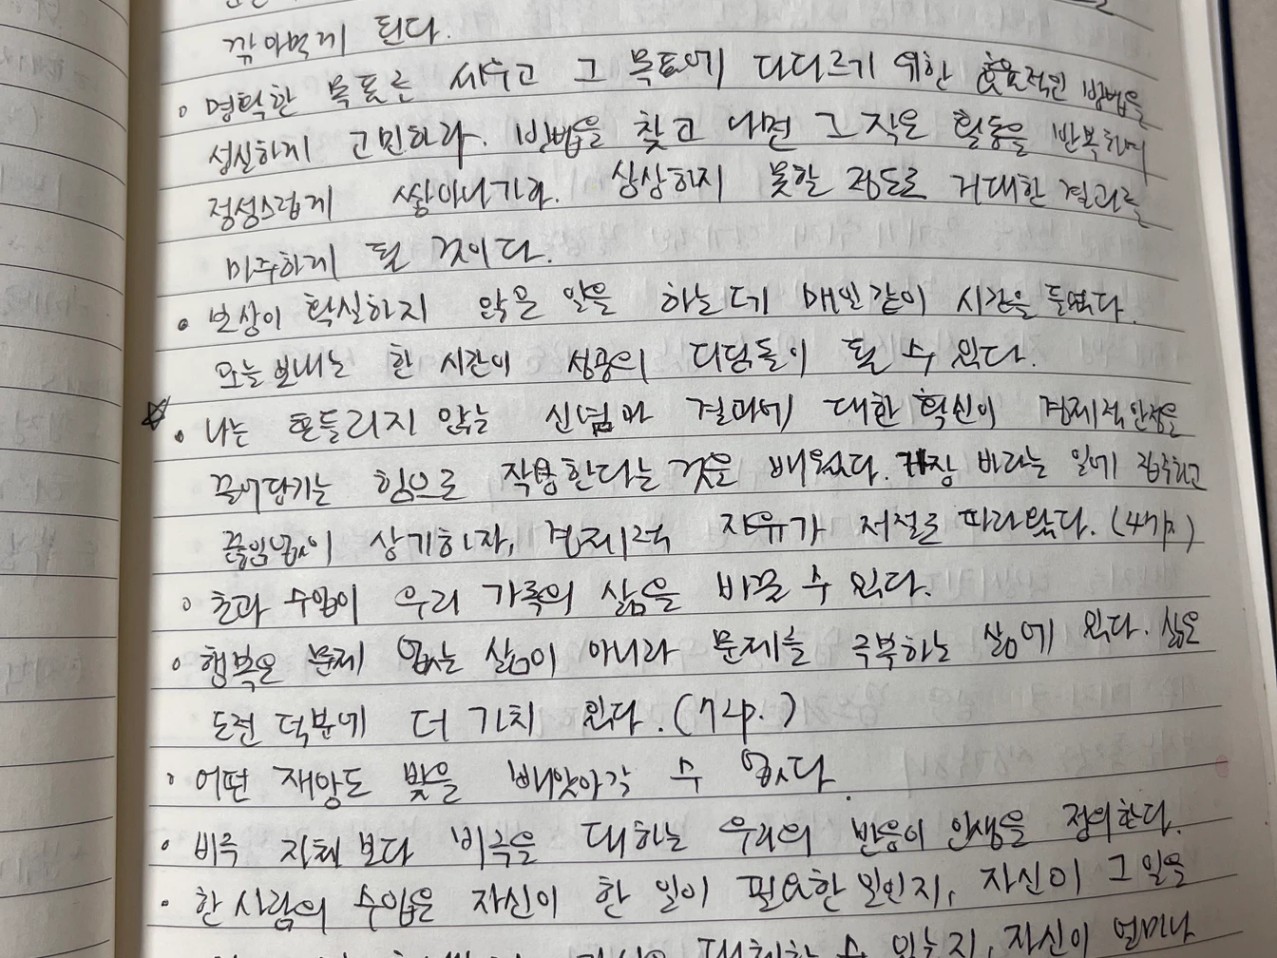 깎아먹게 된다.
• 명확한 목표를 세우고 그 목표에 다다르기 위한 효율적인 방법을
성실하게 고민하라. 방법을 찾고 나면 그 작은 활동을 반복하며
정성스럽게 쌓아나가라. 상상하지 못할 정도로 거대한 결과를
마주하게 될 것이다.
• 보상이 확실하지 않은 일을 하는데 매일같이 시간을 들였다.
오늘 보내는 한 시간이 성공의 디딤돌이 될 수 있다.
☆ • 나는 흔들리지 않는 신념과 결과에 대한 확신이 경제적 안정을
끌어당기는 힘으로 작용한다는 것을 배웠다. 가장 바라는 일에 집중하고
끊임없이 상기하자, 경제적 자유가 저절로 따라왔다. (4가지)
• 초과 수입이 우리 가족의 삶을 바꿀 수 있다.
• 행복은 문제 없는 삶이 아니라 문제를 극복하는 삶에 있다. 삶은
도전 덕분에 더 가치 있다. (72p.)
• 어떤 재앙도 빛을 빼앗아갈 수 없다.
• 비극 자체보다 비극을 대하는 우리의 반응이 인생을 정의한다.
• 한 사람의 수입은 자신이 한 일이 필요한 일인지, 자신이 그 일을
대체할 수 있는지, 자신이 얼마나